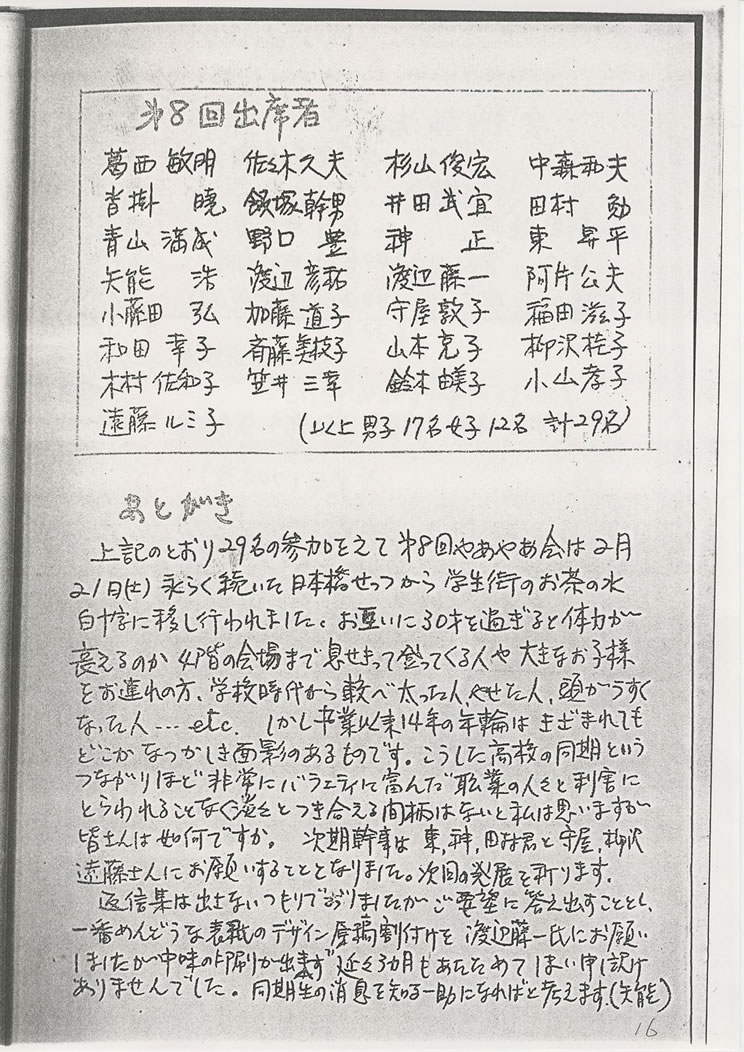 第8回出席者
葛西敏明 佐々木久夫 杉山俊宏 中森和夫
沓掛 暁 飯塚幹男 井田武宜 田村 勉
青山満成 野口 豊 神 正 東 昇平
矢能 浩 渡辺彦祐 渡辺藤一 阿片公夫
小藤田 弘 加藤道子 守屋敦子 福田滋子
和田幸子 斉藤美枝子 山本克子 柳沢桂子
木村佐和子 笠井三幸 鈴木由美子 小山孝子
遠藤ルミ子 (以上男子17名女子12名 計29名)
あとがき
上記のとおり29名の参加をえて第8回やあやあ会は2月
21日(土) 永らく続いた日本橋せっつから学生街のお茶の水
白十字に移し行われました。お互いに30才を過ぎると体力が
衰えるのか4階の会場まで息せきって登ってくる人や大きなお子様
をお連れの方、学校時代から較べ太った人、やせた人、頭がうすく
なった人……etc. しかし卒業以来14年の年輪はきざまれても
どこかなつかしき面影のあるものです。こうした高校の同期という
つながりほど非常にバラエティに富んだ職業の人々と利害に
とらわれることなく淡々とつき合える間柄はないと私は思いますが
皆さんは如何ですか。 次期幹事は東,神,田村君と守屋,柳沢
遠藤さんにお願いすることとなりました。次回の発展を祈ります.
返信集は出さないつもりでおりましたがご要望に答え出すこととし、
一番めんどうな表紙のデザイン原稿割付けを渡辺藤一氏にお願い
しましたが中味の印刷が出来ず延々3カ月もあたためてしまい申し訳
ありませんでした。同期生の消息を知る一助になればと考えます.(矢能)
16